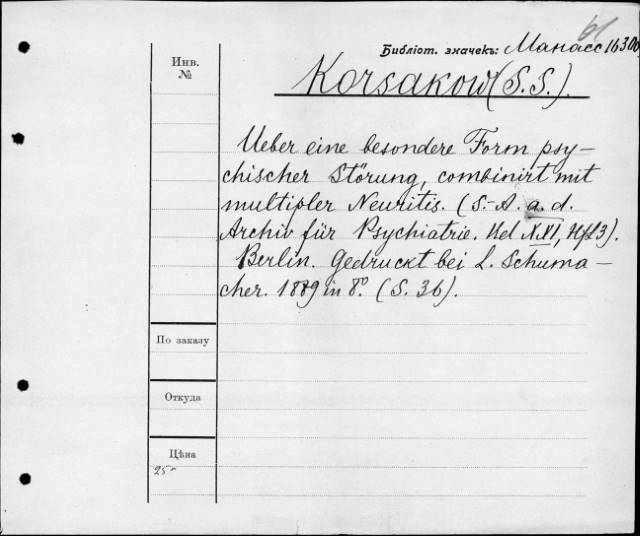 Библiот. значекъ: Манасс 16300
Инв.
№
Korsakow (S. S.).
Ueber eine besondere Form psy-
chischer Störung, combinirt mit
multipler Neuritis. (S.-A. a. d.
Archiv für Psychiatrie. XXI, Hft 3).
Berlin. Gedruckt bei L. Schuma-
cher. 1889 in 8º. (S. 36).
По заказу
Откуда
Цѣна
25